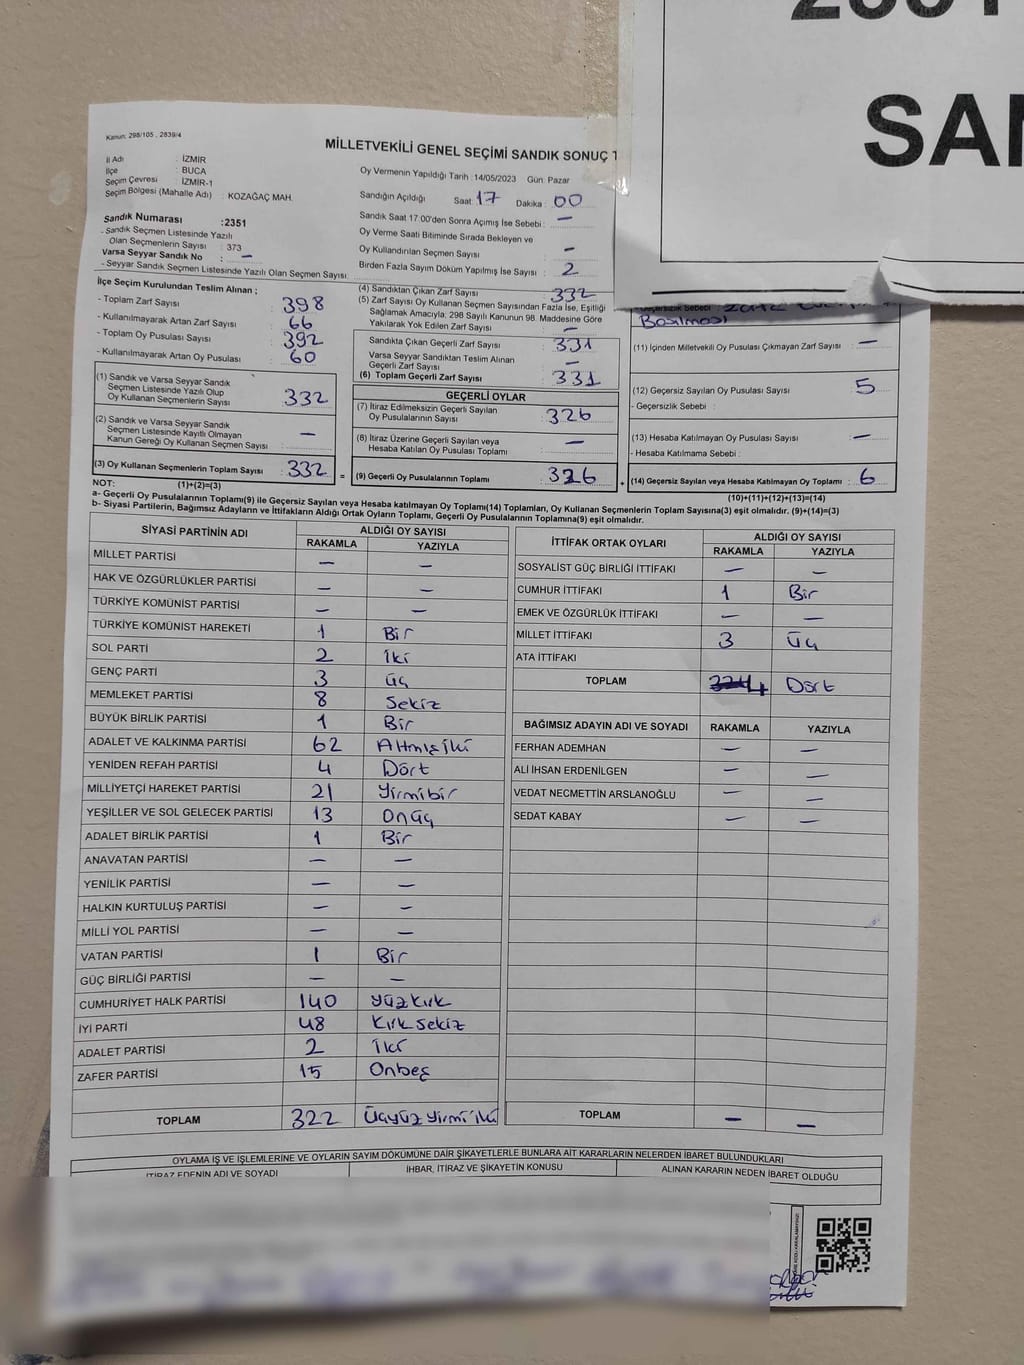 SAN
Kanun: 298/105 , 2839/4
MİLLETVEKİLİ GENEL SEÇİMİ SANDIK SONUÇ
İl Adı : İZMİR
İlçe : BUCA
Seçim Çevresi : İZMİR-1
Seçim Bölgesi (Mahalle Adı) : KOZAĞAÇ MAH.
Oy Vermenin Yapıldığı Tarih :14/05/2023 Gün: Pazar
Sandığın Açıldığı Saat: 17 Dakika : 00
Sandık Saat 17:00'den Sonra Açımış İse Sebebi : —
Oy Verme Saati Bitiminde Sırada Bekleyen ve
Oy Kullandırılan Seçmen Sayısı : —
Birden Fazla Sayım Döküm Yapılmış İse Sayısı : 2
Sandık Numarası :2351
- Sandık Seçmen Listesinde Yazılı
Olan Seçmenlerin Sayısı : 373
Varsa Seyyar Sandık No : —
- Seyyar Sandık Seçmen Listesinde Yazılı Olan Seçmen Sayısı:
İlçe Seçim Kurulundan Teslim Alınan ;
- Toplam Zarf Sayısı : 398
- Kullanılmayarak Artan Zarf Sayısı : 66
- Toplam Oy Pusulası Sayısı : 392
- Kullanılmayarak Artan Oy Pusulası : 60
(1) Sandık ve Varsa Seyyar Sandık
Seçmen Listesinde Yazılı Olup
Oy Kullanan Seçmenlerin Sayısı : 332
(2) Sandık ve Varsa Seyyar Sandık
Seçmen Listesinde Kayıtlı Olmayan
Kanun Gereği Oy Kullanan Seçmen Sayısı : —
(3) Oy Kullanan Seçmenlerin Toplam Sayısı : 332
(4) Sandıktan Çıkan Zarf Sayısı : 332
(5) Zarf Sayısı Oy Kullanan Seçmen Sayısından Fazla İse, Eşitliği
Sağlamak Amacıyla, 298 Sayılı Kanunun 98. Maddesine Göre
Yakılarak Yok Edilen Zarf Sayısı : —
Sandıkta Çıkan Geçerli Zarf Sayısı : 331
Varsa Seyyar Sandıktan Teslim Alınan
Geçerli Zarf Sayısı : —
(6) Toplam Geçerli Zarf Sayısı : 331
GEÇERLİ OYLAR
(7) İtiraz Edilmeksizin Geçerli Sayılan
Oy Pusulalarının Sayısı : 326
(8) İtiraz Üzerine Geçerli Sayılan veya
Hesaba Katılan Oy Pusulası Toplamı : —
= (9) Geçerli Oy Pusulalarının Toplamı : 326
Basılması
(11) İçinden Milletvekili Oy Pusulası Çıkmayan Zarf Sayısı : —
(12) Geçersiz Sayılan Oy Pusulası Sayısı : 5
- Geçersizlik Sebebi :
(13) Hesaba Katılmayan Oy Pusulası Sayısı : —
- Hesaba Katılmama Sebebi :
+ (14) Geçersiz Sayılan veya Hesaba Katılmayan Oy Toplamı : 6
NOT: (1)+(2)=(3)
(10)+(11)+(12)+(13)=(14)
a- Geçerli Oy Pusulalarının Toplamı(9) ile Geçersiz Sayılan veya Hesaba katılmayan Oy Toplamı(14) Toplamları, Oy Kullanan Seçmenlerin Toplam Sayısına(3) eşit olmalıdır. (9)+(14)=(3)
b- Siyasi Partilerin, Bağımsız Adayların ve İttifakların Aldığı Ortak Oyların Toplamı, Geçerli Oy Pusulalarının Toplamına(9) eşit olmalıdır.
SİYASİ PARTİNİN ADI ALDIĞI OY SAYISI
RAKAMLA YAZIYLA
MİLLET PARTİSİ — —
HAK VE ÖZGÜRLÜKLER PARTİSİ — —
TÜRKİYE KOMÜNİST PARTİSİ — —
TÜRKİYE KOMÜNİST HAREKETİ 1 Bir
SOL PARTİ 2 İki
GENÇ PARTİ 3 üç
MEMLEKET PARTİSİ 8 Sekiz
BÜYÜK BİRLİK PARTİSİ 1 Bir
ADALET VE KALKINMA PARTİSİ 62 Altmışiki
YENİDEN REFAH PARTİSİ 4 Dört
MİLLİYETÇİ HAREKET PARTİSİ 21 Yirmibir
YEŞİLLER VE SOL GELECEK PARTİSİ 13 Onüç
ADALET BİRLİK PARTİSİ 1 Bir
ANAVATAN PARTİSİ — —
YENİLİK PARTİSİ — —
HALKIN KURTULUŞ PARTİSİ — —
MİLLİ YOL PARTİSİ — —
VATAN PARTİSİ 1 Bir
GÜÇ BİRLİĞİ PARTİSİ — —
CUMHURİYET HALK PARTİSİ 140 yüzkırk
İYİ PARTİ 48 Kırksekiz
ADALET PARTİSİ 2 İki
ZAFER PARTİSİ 15 Onbeş
TOPLAM 322 Üçyüz yirmi iki
İTTİFAK ORTAK OYLARI ALDIĞI OY SAYISI
RAKAMLA YAZIYLA
SOSYALİST GÜÇ BİRLİĞİ İTTİFAKI — —
CUMHUR İTTİFAKI 1 Bir
EMEK VE ÖZGÜRLÜK İTTİFAKI — —
MİLLET İTTİFAKI 3 Üç
ATA İTTİFAKI
TOPLAM 4 Dört
BAĞIMSIZ ADAYIN ADI VE SOYADI RAKAMLA YAZIYLA
FERHAN ADEMHAN — —
ALİ İHSAN ERDENİLGEN — —
VEDAT NECMETTİN ARSLANOĞLU — —
SEDAT KABAY — —
TOPLAM — —
OYLAMA İŞ VE İŞLEMLERİNE VE OYLARIN SAYIM DÖKÜMÜNE DAİR ŞİKAYETLERLE BUNLARA AİT KARARLARIN NELERDEN İBARET BULUNDUKLARI
İTİRAZ EDENİN ADI VE SOYADI İHBAR, İTİRAZ VE ŞİKAYETİN KONUSU ALINAN KARARIN NEDEN İBARET OLDUĞU